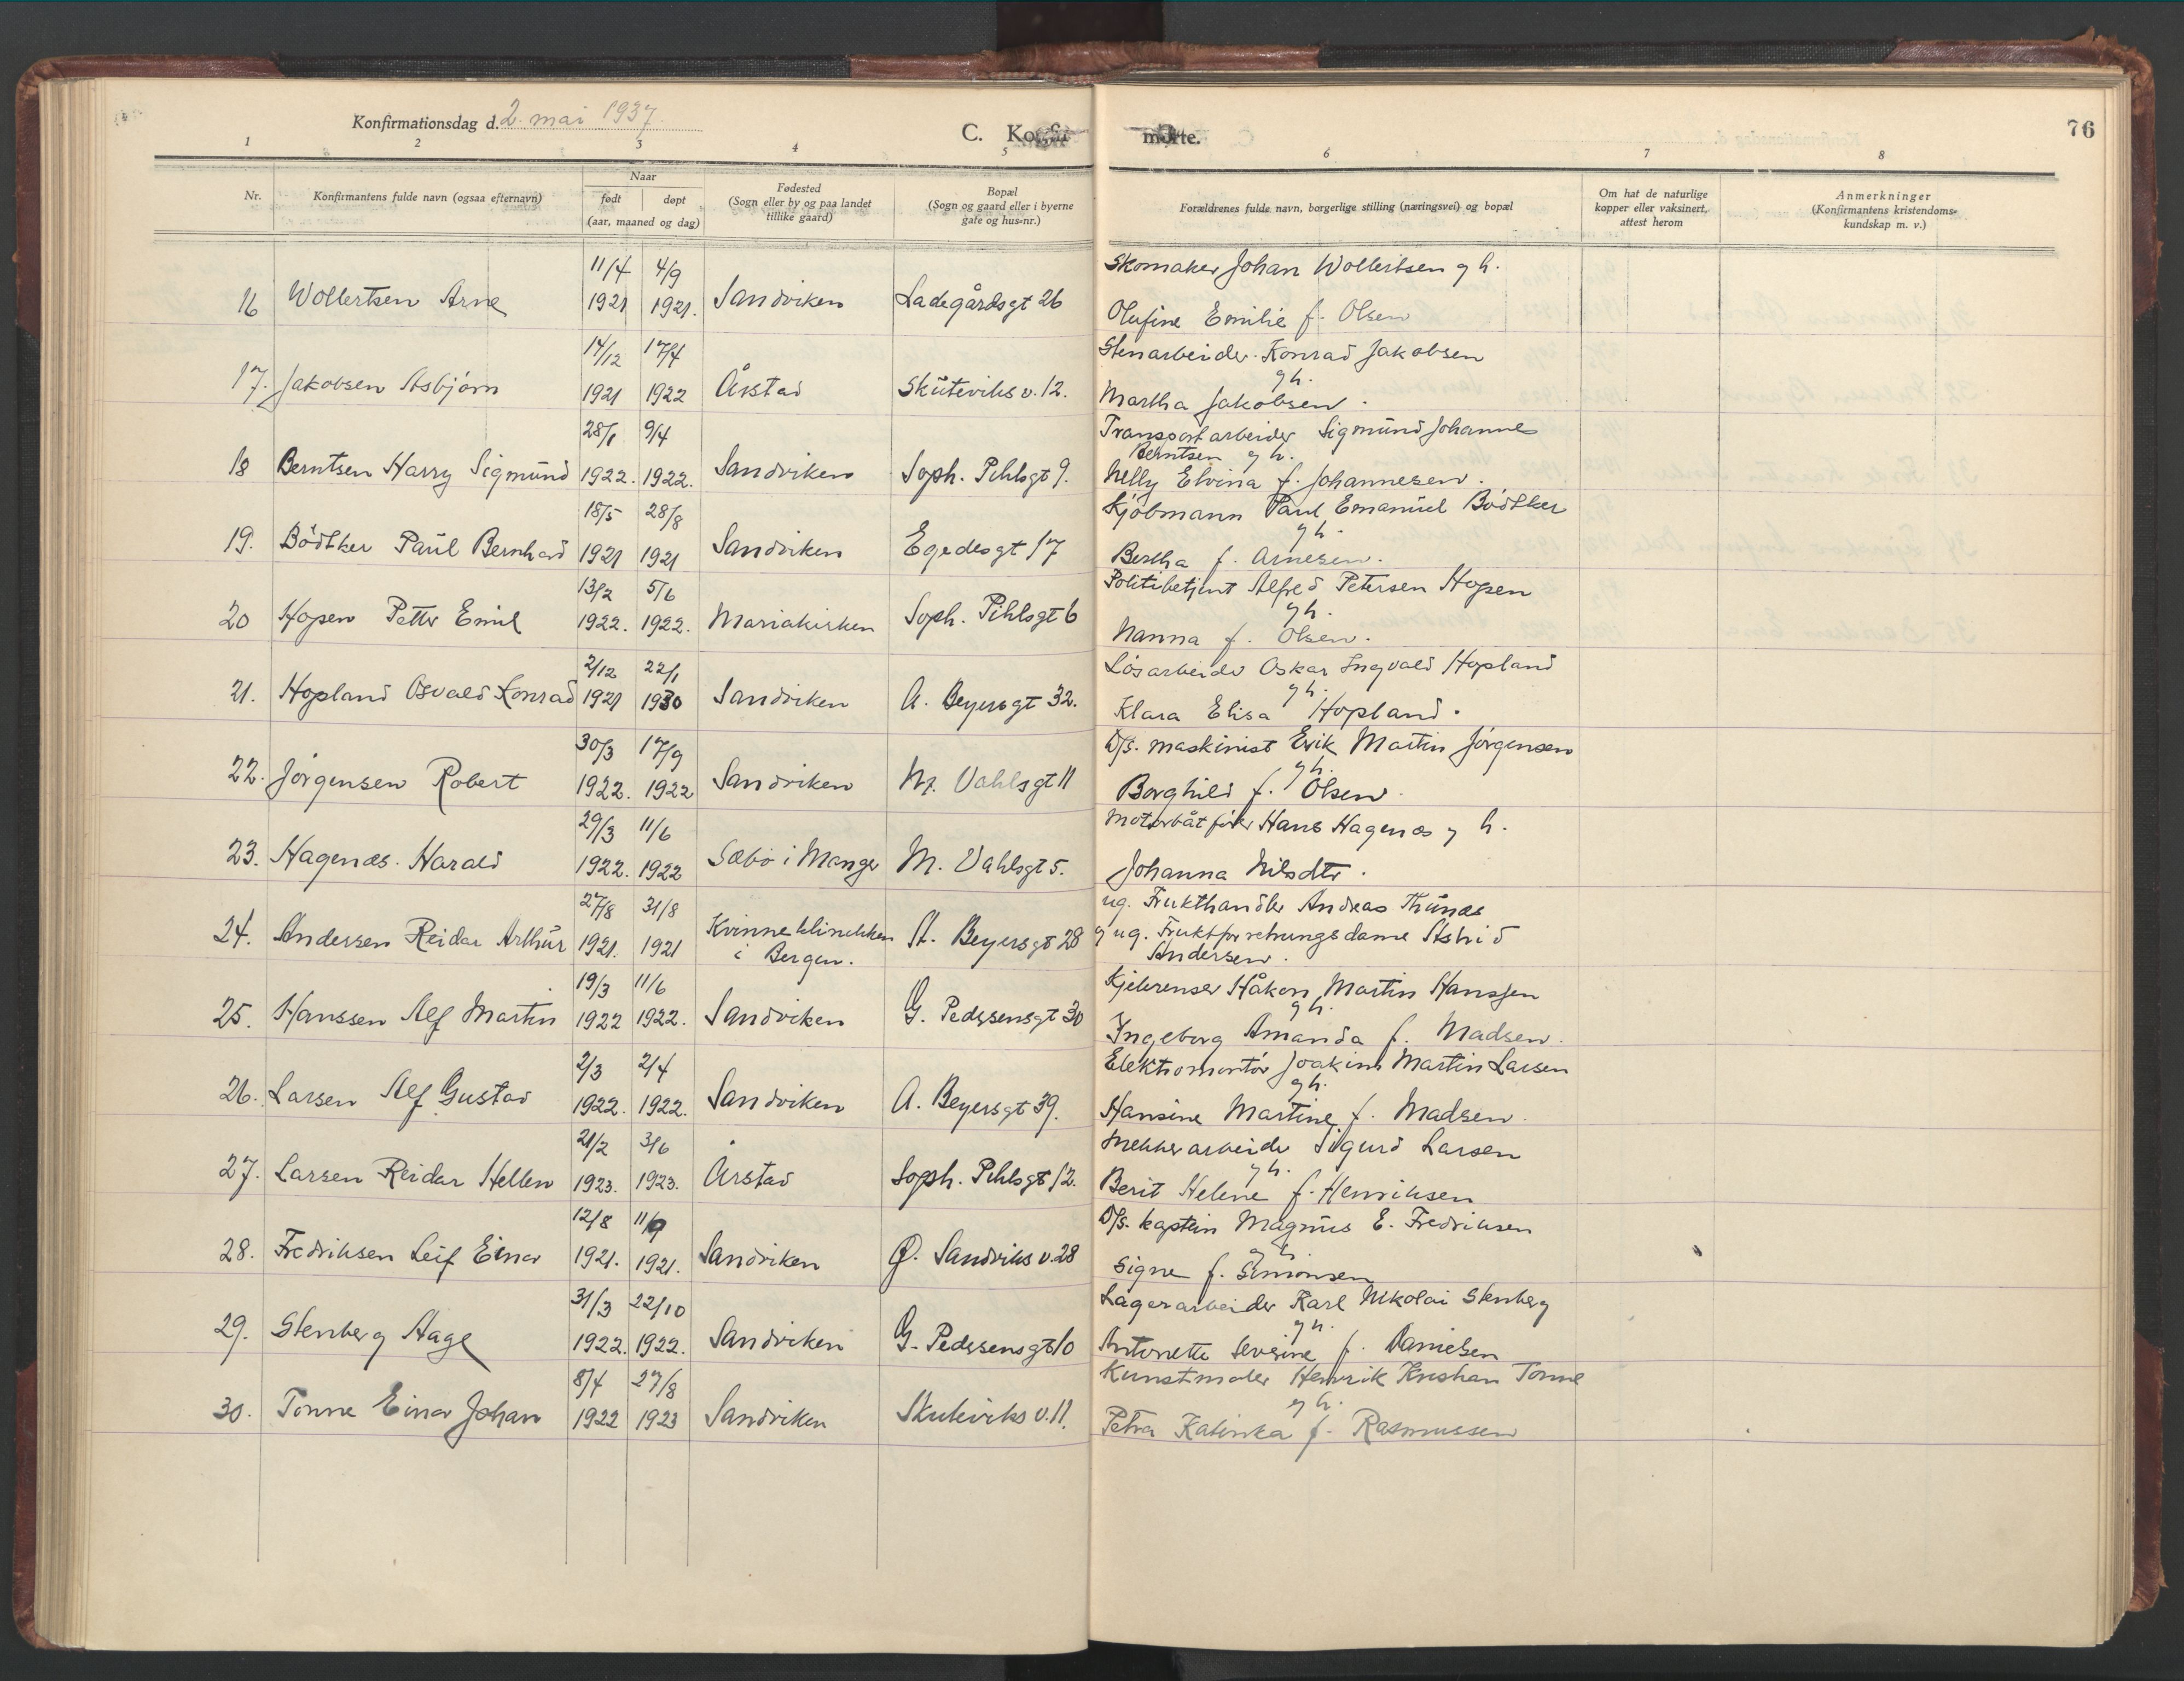 Konfirmationsdag d. 2. mai 1937.
C. Konfirmerte.
76
1 2 3 4 5 6 7 8
Nr.
Konfirmantens fulde navn (ogsaa efternavn)
Naar
født døpt
(aar, maaned og dag)
Fødested
(Sogn eller by og paa landet
tillike gaard)
Bopæl
(Sogn og gaard eller i byerne
gate og hus-nr.)
Forældrenes fulde navn, borgerlige stilling (næringsvei) og bopæl
Om hat de naturlige
kopper eller vaksinert,
attest herom
Anmerkninger
(Konfirmantens kristendoms-
kundskap m. v.)
11/4 4/9 Skomaker Johan Wollertsen g h.
16 Wollertsen Arne 1921 1921. Sandviken Ladegårdsgt 26
Olufine Emilie f. Olsen
14/12 17/4 Stenarbeider Konrad Jakobsen
g h.
17. Jakobsen Asbjørn 1921 1922 Årstad Skuteviks v. 12. Martha Jakobsen.
28/1 9/4 Transportarbeider Sigmund Johannes
Berntsen g h.
18 Berntsen Harry Sigmund 1922. 1922. Sandviken Soph. Pihlsgt 9. Nelly Elvina f. Johannesen.
18/5 28/8 Kjøbmann Paul Emanuel Bödtker
g h.
19. Bödtker Paul Bernhard 1921 1921 Sandviken Egedesgt 17 Bertha f. Arnesen.
13/2 5/6 Politibetjent Alfred Petersen Hopen
g h.
20 Hopen Petter Emil 1922. 1922. Mariakirken Soph. Pihlsgt 6 Nanna f. Olsen.
2/12 22/1 Løsarbeider Oskar Ingvald Hopland
g h.
21. Hopland Osvald Konrad 1921 1930 Sandviken A. Beyersgt 32. Klara Elisa Hopland.
30/3 17/9 D/s. maskinist Erik Martin Jörgensen
g h.
22. Jörgensen Robert 1922. 1922 Sandviken M. Vahlsgt 11 Borghild f. Olsen.
29/3 11/6 Motorbåtfører Hans Hagenæs g h.
23. Hagenæs. Harald 1922. 1922 Sæbö i Manger M. Vahlsgt 5. Johanna Nilsdtr.
27/8 31/8 ug. Frukthandler Andreas Thunæs
24. Andersen Reidar Arthur 1921. 1921 Kvinneklinikken A. Beyersgt 28 g ug. Fruktforretningsdame Astrid
i Bergen. Andersen.
19/3 11/6 Kjelerenser Håkon Martin Hanssen
g h.
25. Hanssen Alf Martin 1922 1922. Sandviken G. Pedersensgt 30 Ingeborg Amanda f. Madsen.
2/3 2/4 Elektromontør Joakim Martin Larsen
g h.
26. Larsen Alf Gustav 1922. 1922. Sandviken A. Beyersgt 39. Hansine Martine f. Madsen.
21/2 3/6 Mekkerarbeider Sigurd Larsen
g h.
27. Larsen Reidar Hellen 1923. 1923. Årstad Soph. Pihlsgt 12. Berit Helene f. Henriksen
12/8 11/9 D/s. kaptein Magnus E. Fredriksen
g h.
28. Fredriksen Leif Einar 1921. 1921. Sandviken Ø. Sandviks v. 28 Signe f. Simonsen
31/3 22/10 Lagerarbeider Karl Nikolai Stenberg
g h.
29. Stenberg Aage 1922. 1922. Sandviken G. Pedersensgt 10 Antonette Severine f. Danielsen
8/4 27/8 Kunstmaler Henrik Kristian Tonne
g h.
30. Tonne Einar Johan 1922 1923 Sandviken Skuteviks v. 11. Petra Katinka f. Rasmussen